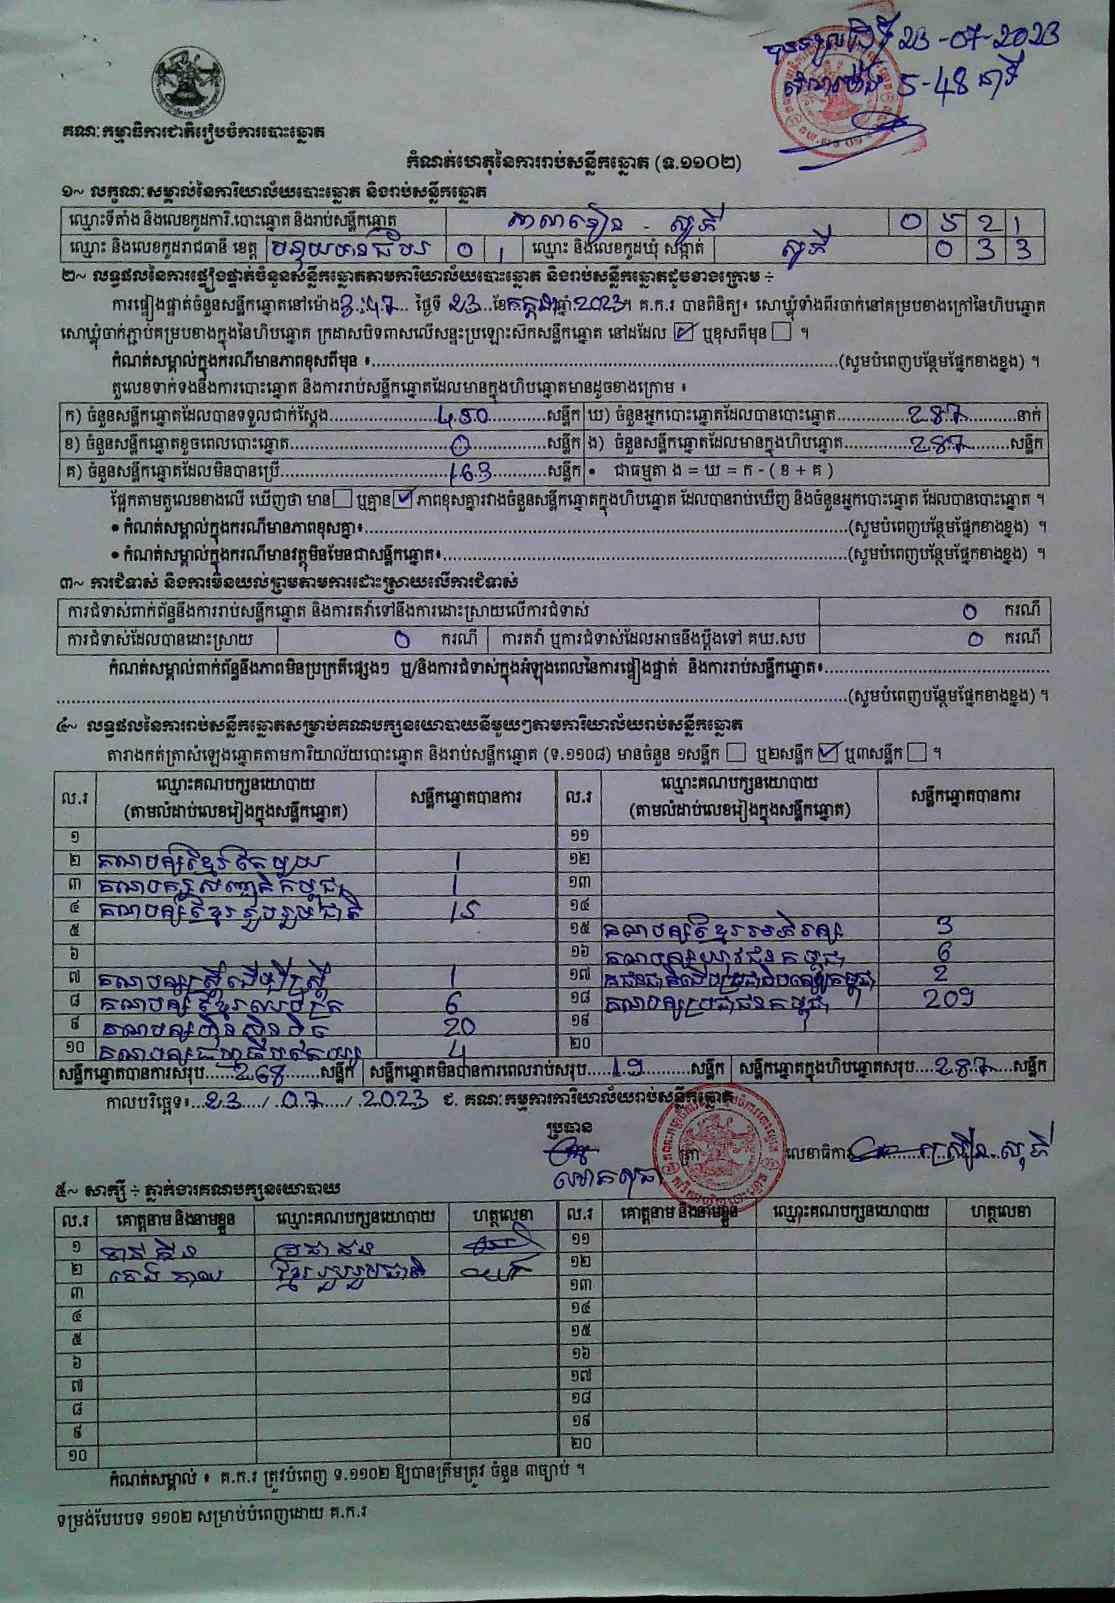 បានទទួលថ្ងៃទី 23-07-2023
វេលាម៉ោង 5-48 នាទី
គណៈកម្មាធិការជាតិរៀបចំការបោះឆ្នោត
កំណត់ហេតុនៃការរាប់សន្លឹកឆ្នោត (ទ.១១០២)
១~ លក្ខណៈសម្គាល់នៃការិយាល័យបោះឆ្នោត និងរាប់សន្លឹកឆ្នោត
ឈ្មោះទីតាំង និងលេខកូដការិ.បោះឆ្នោត និងរាប់សន្លឹកឆ្នោត 0 5 2 1
ឈ្មោះ និងលេខកូដរាជធានី ខេត្ត បន្ទាយមានជ័យ 0 1 ឈ្មោះ និងលេខកូដឃុំ សង្កាត់ 0 3 3
២~ លទ្ធផលនៃការផ្ទៀងផ្ទាត់ចំនួនសន្លឹកឆ្នោតតាមការិយាល័យបោះឆ្នោត និងរាប់សន្លឹកឆ្នោតដូចខាងក្រោម ÷
ការផ្ទៀងផ្ទាត់ចំនួនសន្លឹកឆ្នោតនៅម៉ោង 3:47 ថ្ងៃទី 23 ខែ កក្កដា ឆ្នាំ 2023 ។ គ.ក.រ បានពិនិត្យ៖ សោឃ្លុំទាំងពីរចាក់នៅគម្របខាងក្រៅនៃហិបឆ្នោត
សោឃ្លុំចាក់ភ្ជាប់គម្របខាងក្នុងនៃហិបឆ្នោត ក្រដាសបិទពាសលើសន្ទះប្រឡោះស៊កសន្លឹកឆ្នោត នៅដដែល ☑ ឬខុសពីមុន ☐ ។
កំណត់សម្គាល់ក្នុងករណីមានភាពខុសពីមុន ៖ (សូមបំពេញបន្ថែមផ្នែកខាងខ្នង) ។
តួលេខទាក់ទងនឹងការបោះឆ្នោត និងការរាប់សន្លឹកឆ្នោតដែលមានក្នុងហិបឆ្នោតមានដូចខាងក្រោម ៖
ក) ចំនួនសន្លឹកឆ្នោតដែលបានទទួលជាក់ស្តែង 450 សន្លឹក ឃ) ចំនួនអ្នកបោះឆ្នោតដែលបានបោះឆ្នោត 287 នាក់
ខ) ចំនួនសន្លឹកឆ្នោតខូចពេលបោះឆ្នោត 0 សន្លឹក ង) ចំនួនសន្លឹកឆ្នោតដែលមានក្នុងហិបឆ្នោត 287 សន្លឹក
គ) ចំនួនសន្លឹកឆ្នោតដែលមិនបានប្រើ 163 សន្លឹក • ជាធម្មតា ង = ឃ = ក - ( ខ + គ )
ផ្អែកតាមតួលេខខាងលើ ឃើញថា មាន ☐ ឬគ្មាន ☑ ភាពខុសគ្នារវាងចំនួនសន្លឹកឆ្នោតក្នុងហិបឆ្នោត ដែលបានរាប់ឃើញ និងចំនួនអ្នកបោះឆ្នោត ដែលបានបោះឆ្នោត ។
• កំណត់សម្គាល់ក្នុងករណីមានភាពខុសគ្នា៖ (សូមបំពេញបន្ថែមផ្នែកខាងខ្នង) ។
• កំណត់សម្គាល់ក្នុងករណីមានវត្ថុមិនមែនជាសន្លឹកឆ្នោត៖ (សូមបំពេញបន្ថែមផ្នែកខាងខ្នង) ។
៣~ ការជំទាស់ និងការមិនយល់ព្រមតាមការដោះស្រាយលើការជំទាស់
ការជំទាស់ពាក់ព័ន្ធនឹងការរាប់សន្លឹកឆ្នោត និងការតវ៉ាទៅនឹងការដោះស្រាយលើការជំទាស់ 0 ករណី
ការជំទាស់ដែលបានដោះស្រាយ 0 ករណី ការតវ៉ា ឬការជំទាស់ដែលអាចនឹងប្តឹងទៅ គឃ.សប 0 ករណី
កំណត់សម្គាល់ពាក់ព័ន្ធនឹងភាពមិនប្រក្រតីផ្សេងៗ ឬ/និងការជំទាស់ក្នុងអំឡុងពេលនៃការផ្ទៀងផ្ទាត់ និងការរាប់សន្លឹកឆ្នោត៖
(សូមបំពេញបន្ថែមផ្នែកខាងខ្នង) ។
៤~ លទ្ធផលនៃការរាប់សន្លឹកឆ្នោតសម្រាប់គណបក្សនយោបាយនីមួយៗតាមការិយាល័យរាប់សន្លឹកឆ្នោត
តារាងកត់ត្រាសំឡេងឆ្នោតតាមការិយាល័យបោះឆ្នោត និងរាប់សន្លឹកឆ្នោត (ទ.១១០៨) មានចំនួន ១សន្លឹក ☐ ឬ២សន្លឹក ☑ ឬ៣សន្លឹក ☐ ។
ល.រ ឈ្មោះគណបក្សនយោបាយ (តាមលំដាប់លេខរៀងក្នុងសន្លឹកឆ្នោត) សន្លឹកឆ្នោតបានការ ល.រ ឈ្មោះគណបក្សនយោបាយ (តាមលំដាប់លេខរៀងក្នុងសន្លឹកឆ្នោត) សន្លឹកឆ្នោតបានការ
១ ១១
២ គណបក្សខ្មែរតែមួយ 1 ១២
៣ 1 ១៣
៤ គណបក្សខ្មែររួបរួមជាតិ 15 ១៤
៥ ១៥ គណបក្សខ្មែរអភិរក្ស 3
៦ ១៦ គណបក្សយុវជនកម្ពុជា 6
៧ គណបក្សស្ត្រីដើម្បីស្ត្រី 1 ១៧ 2
៨ គណបក្សខ្មែរឈប់ក្រ 6 ១៨ គណបក្សប្រជាជនកម្ពុជា 209
៩ គណបក្សហ៊្វុនស៊ិនប៉ិច 20 ១៩
១០ គណបក្សធម្មាធិបតេយ្យ 4 ២០
សន្លឹកឆ្នោតបានការសរុប 268 សន្លឹក សន្លឹកឆ្នោតមិនបានការពេលរាប់សរុប 19 សន្លឹក សន្លឹកឆ្នោតក្នុងហិបឆ្នោតសរុប 287 សន្លឹក
កាលបរិច្ឆេទ៖ 23 / 07 / 2023 ជ. គណៈកម្មការការិយាល័យរាប់សន្លឹកឆ្នោត
ប្រធាន
ត្រា លេខាធិការ
៥~ សាក្សី ÷ ភ្នាក់ងារគណបក្សនយោបាយ
ល.រ គោត្តនាម និងនាមខ្លួន ឈ្មោះគណបក្សនយោបាយ ហត្ថលេខា ល.រ គោត្តនាម និងនាមខ្លួន ឈ្មោះគណបក្សនយោបាយ ហត្ថលេខា
១ ប្រជាជន ១១
២ ខ្មែររួបរួមជាតិ ១២
៣ ១៣
៤ ១៤
៥ ១៥
៦ ១៦
៧ ១៧
៨ ១៨
៩ ១៩
១០ ២០
កំណត់សម្គាល់ ៖ គ.ក.រ ត្រូវបំពេញ ទ.១១០២ ឱ្យបានត្រឹមត្រូវ ចំនួន ៣ច្បាប់ ។
ទម្រង់បែបបទ ១១០២ សម្រាប់បំពេញដោយ គ.ក.រ